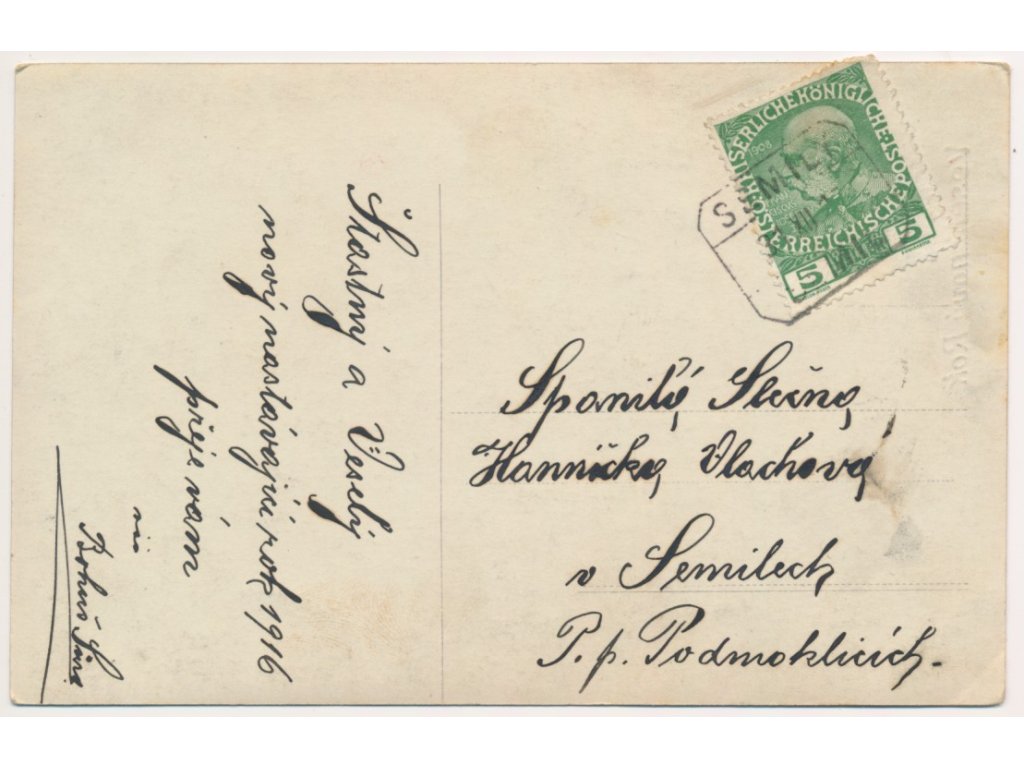 Šťastný a Veselý
nový nastávající rok 1916
přeje vám
Bohuš
KAISERLICHE KÖNIGLICHE
ÖSTERREICHISCHE POST
1908
5 5
SEMIL
VIII
Spanilá Slečna
Hannička Vlachová
v Semilech
P. p. Podmoklicích.